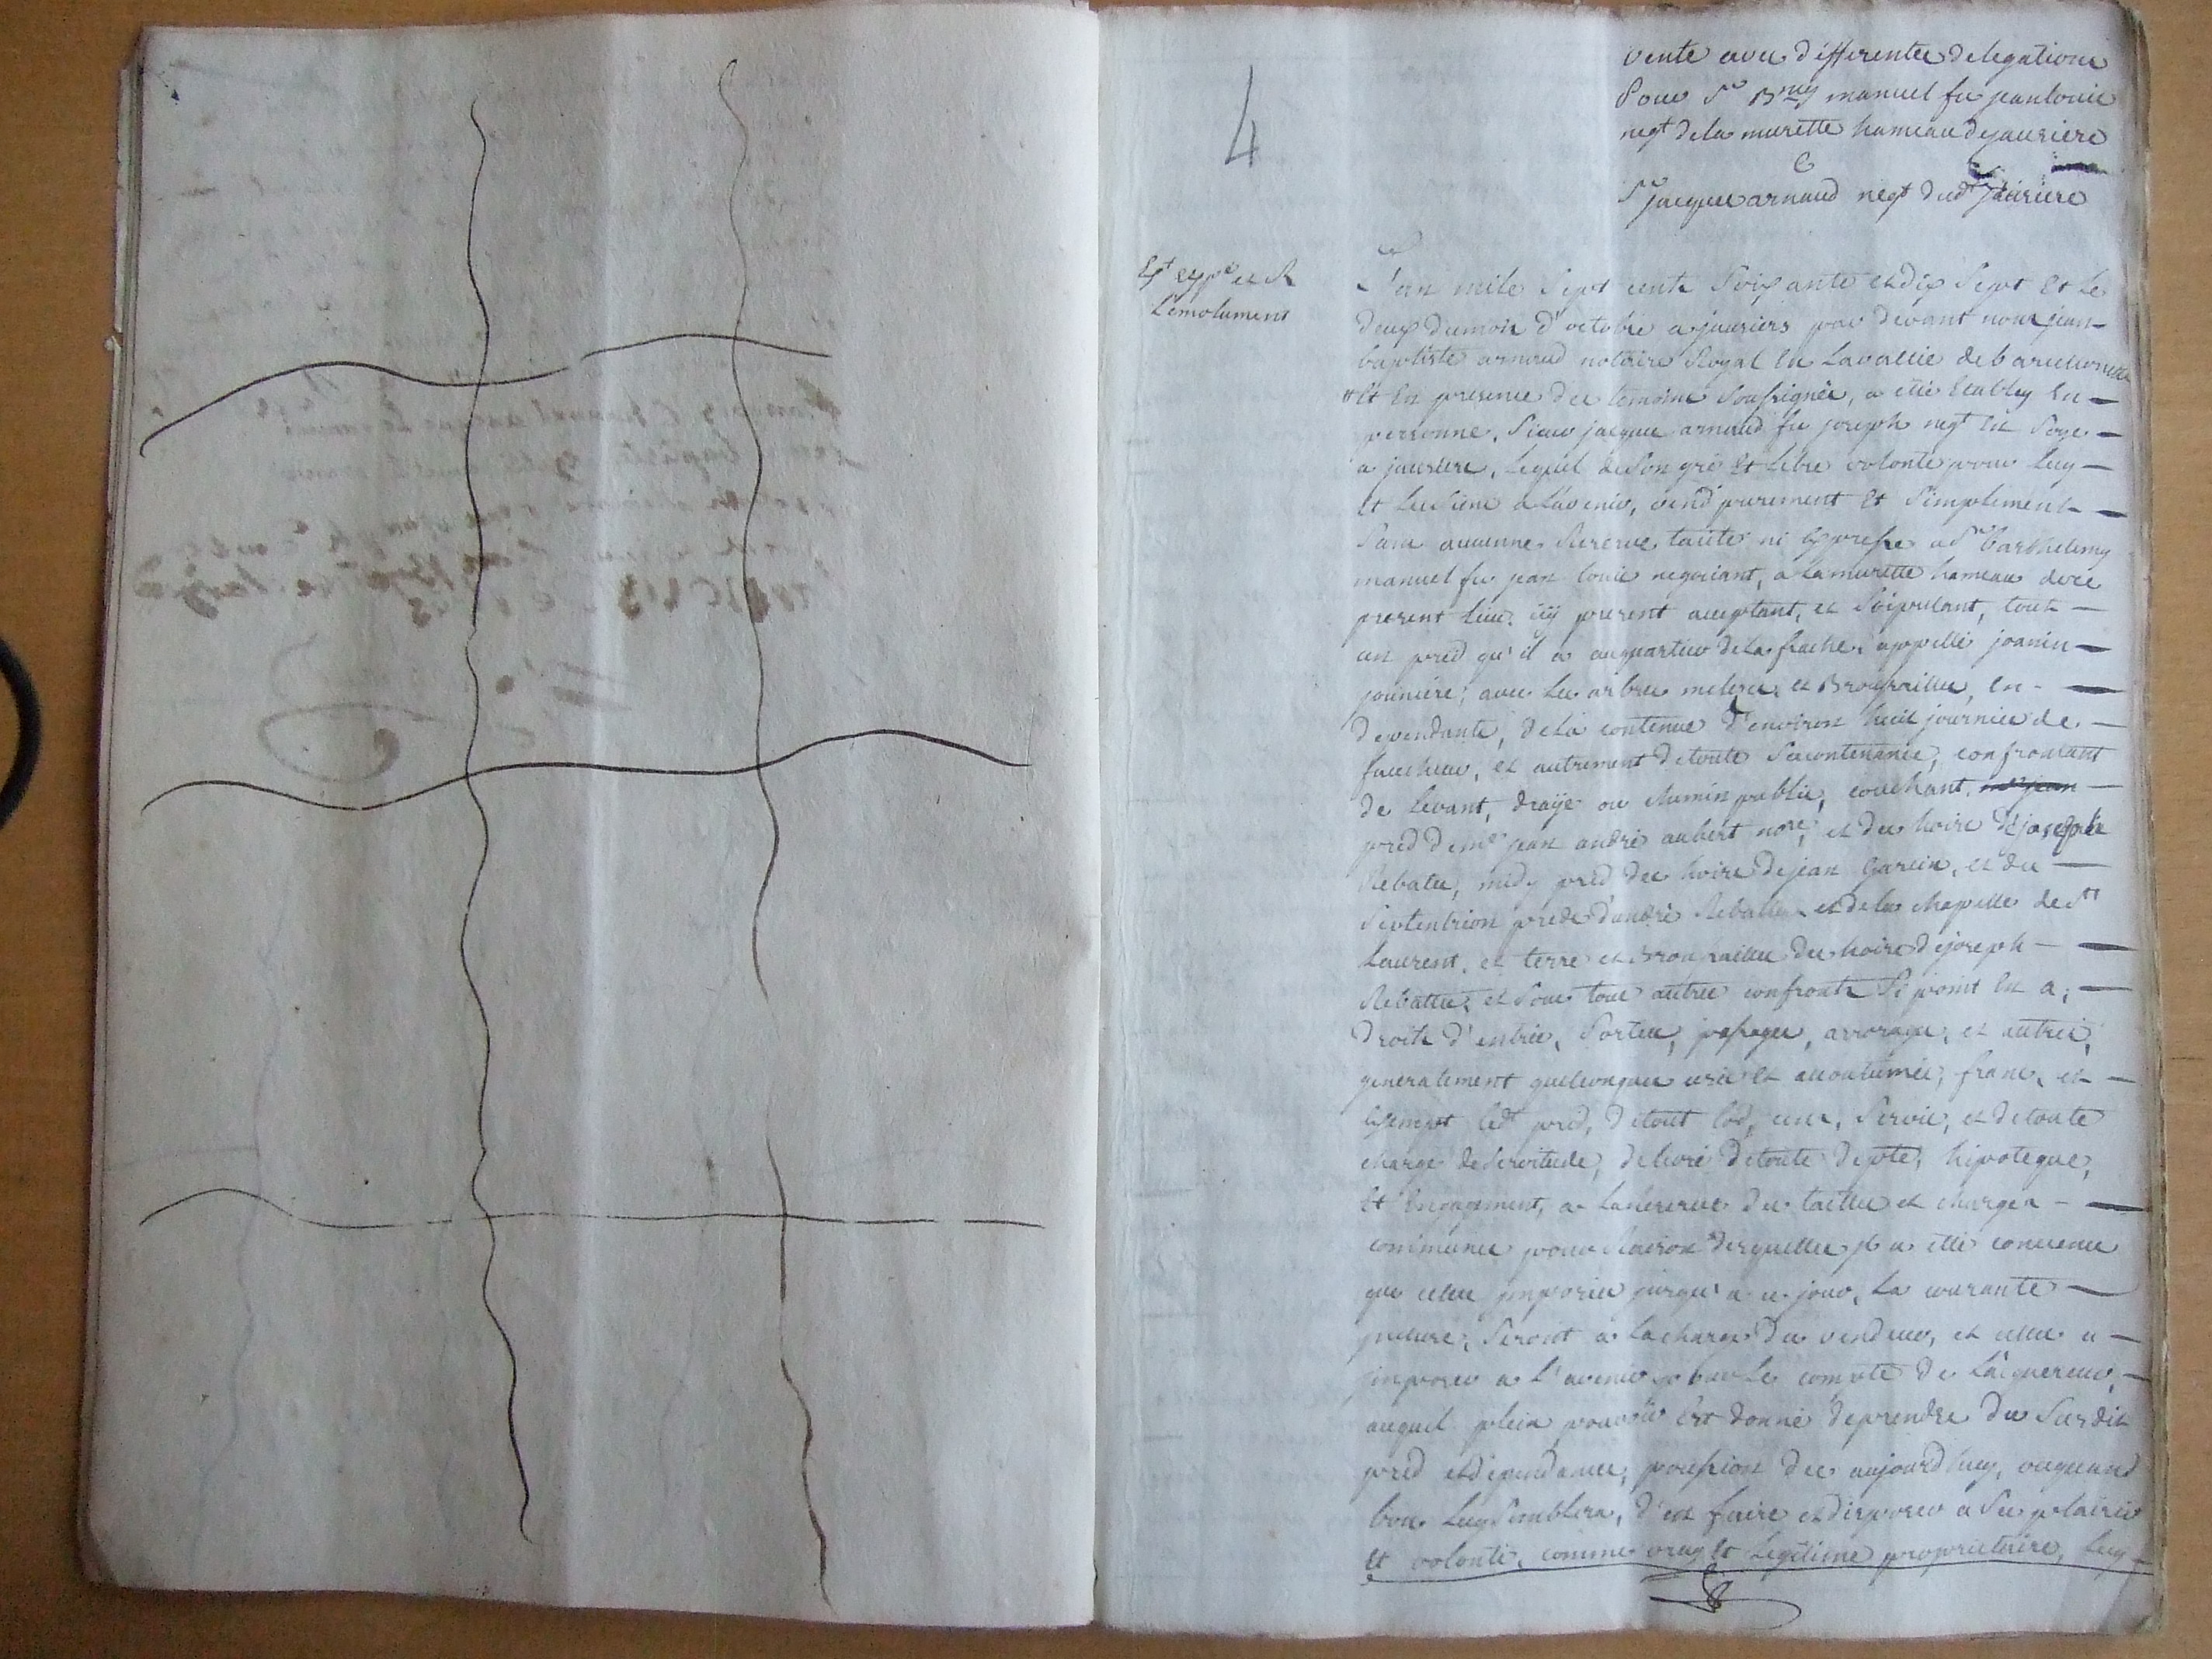 4
vente avec differentes delegations
Pour Sr Bmy manuel fu jean louis
negt de la murette hameau de jausiers
C
Sr jacques arnaud negt dudt jausiers
Et expé et R
L'emolument
L'an mile sept cents soixante et dix sept et le
deux du mois d'octobre a jausiers par devant nous jean
baptiste arnaud notaire Royal en la vallée de barcelonne
et en presence des temoins soussignés, a été etably en
personne, sieur jacques arnaud fu joseph negt en soye
a jausiers, lequel de son gré et libre volonté pour luy
et les siens a l'avenir, vend purement et simplement
sans aucunne reserve tacite ni expresse a Sr barthelemy
manuel fu jean louis negociant, a la murette hameau de ce
present lieu, icy present acceptant, et stipulant, tout
un pred qu'il a au quartier de la frache, appellé joanin
jouniere; avec les arbres meleses et Brousailles, en
dependants, de la contenue d'environ huit journées de
faucheur, et autrement de toute sa contenance, confrontant
de levant, draye ou chemin public, couchant,
pred de me jean andré aubert nore, et des hoirs de joseph
Rebatu, midy pred des hoirs de jean Garcin, et du
septentrion preds d'andré Rebattu et de la chapelle de St
Laurent, et terre et Brousailles des hoirs de joseph
Rebattu, et sous tous autres confronts si point en a;
droits d'entrée, sorties, passages, arrosages, et autres,
generalement quelconques usés et accoutumés, franc, et
exempt ledt pred, de tout lod, cens, servis, et de toute
charge de servitude, delivré de toute depte, hipoteque,
et engagement, a la reserve des tailles et charges
communes pour raison desquelles il a été convenu
que celles imposées jusqu'a ce jour, la courante
incluse, seront a la charge du vendeur, et celles a
imposer a l'avenir pour le compte de l'acquereur,
auquel plein pouvoir est donné de prendre du susdit
pred et dependances, possession des aujourd'huy, ou quand
bon luy semblera, d'en faire et disposer a ses plaisirs
et volonté, comme vray et legitime proprietaire, luy